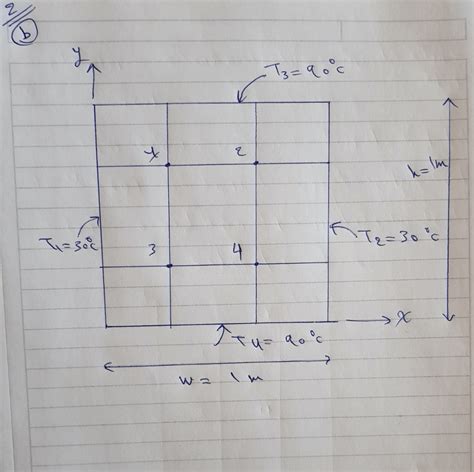 2
b
y
T3 = 90°c
1 2
h = 1m
T1 = 30°c
T2 = 30°c
3 4
x
T4 = 90°c
w = 1 m